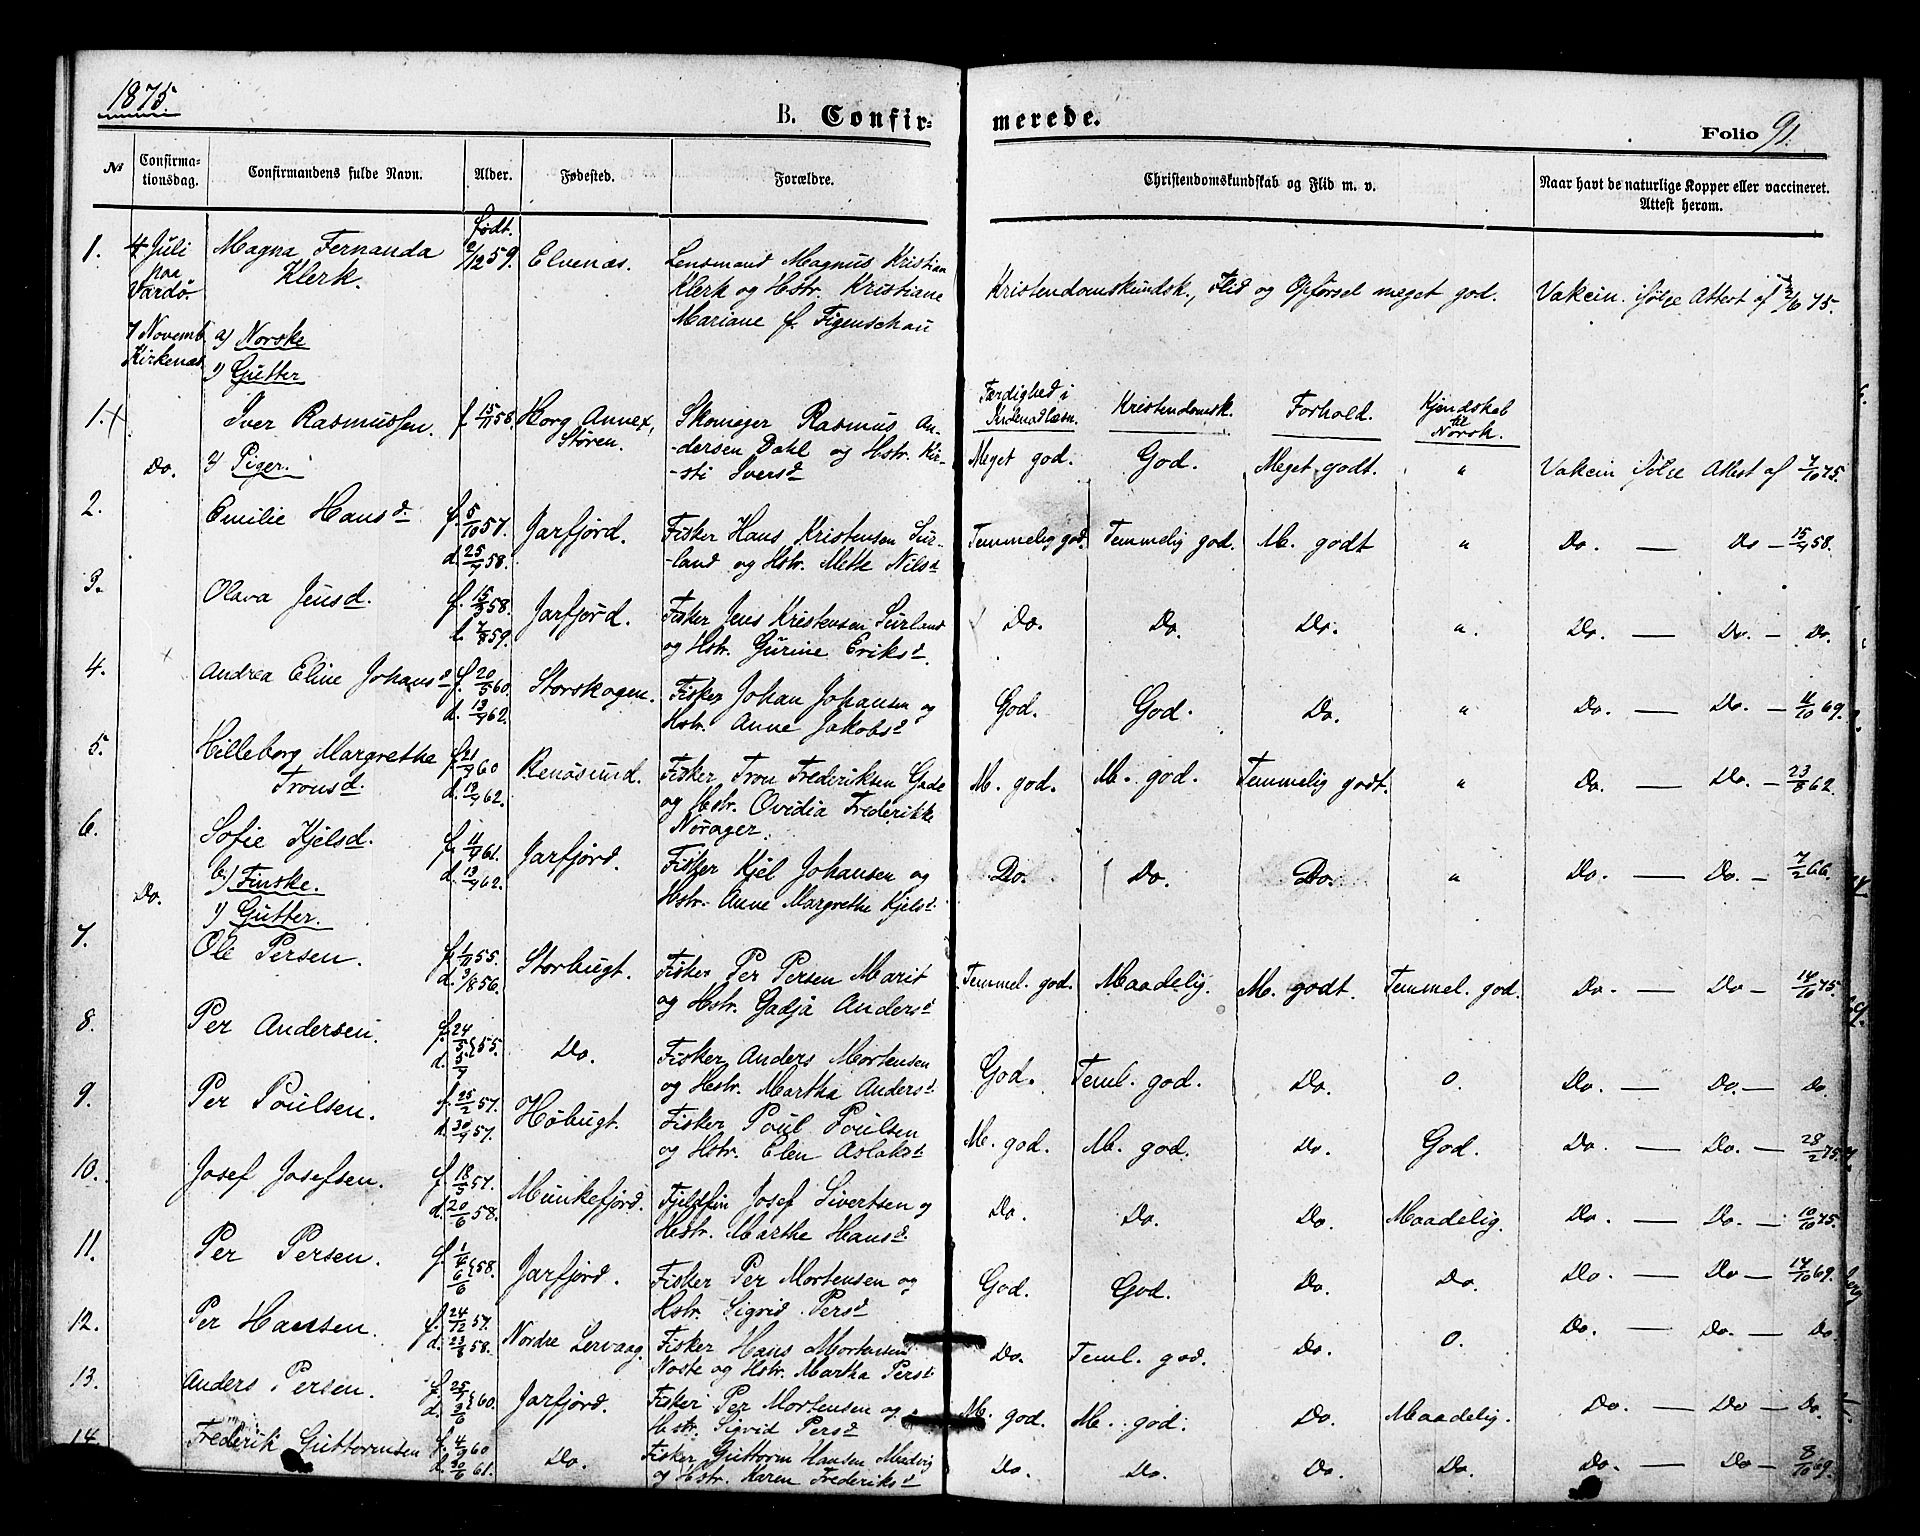 1875.
B. Confir-
merede.
Folio 91.
No
Confirma-
tionsdag.
Confirmandens fulde Navn.
Alder.
Fødested.
Forældre.
Christendomskundskab og Flid m. v.
Naar havt de naturlige Kopper eller vaccineret.
Attest herom.
Født.
1. 4 Juli Magna Fernanda 2/12 59. Elvenæs. Lensmand Magnus Kristian
paa Vardø. Klerk. Klerk og Hstr. Kristiane
Mariane f. Figenschau
Kristendomskundsk., Flid og Opførsel meget god. Vakcin. ifølge Attest af 75.
7 Novemb. a) Norske
Kirkenæs 1) Gutter
Færdighed i Indenadlæsn. Kristendomsk. Forhold. Kjendskab til Norsk.
1. Iver Rasmussen. f. 15/11 58. Horg Annex, Støren. Skomager Rasmus An-
-dersen Dahl og Hstr. Kir-
-sti Iversd
Meget god. God. Meget godt. " Vakcin ifølge Attest af 7/10 75.
Do. 2) Piger.
2. Emilie Hansd. f. 5/10 57. Jarfjord. Fisker Hans Kristensen Sür-
d. 25/7 58. -land og Hstr. Mette Nilsd
Temmelig god. Temmelig god. M. godt " Do. — Do — 58.
3. Olava Jensd. f. 58. Jarfjord. Fisker Jens Kristensen Sürland
59. og Hstr. Gurine Eriksd.
Do. Do. Do. " Do. — Do. — Do.
4. Andrea Eline Johansd f. 20/5 60. Storskogen. Fisker Johan Johansen og
d. 13/9 62. Hstr. Anne Jakobsd
God. God. Do. " Do. — Do. — 11/10 69.
5. Hilleborg Margrethe f. 60 Renøsund. Fisker Tron Frederiksen Gade
Tronsd. d. 62. og Hstr. Ovidia Frederikke
Norager.
M. god. M. god. Temmelig godt. " Do. — Do. — 23/8 62.
6. Sofie Kjelsd. f. 61. Jarfjord. Fisker Kjel Johansen og
d. 13/9 62. Hstr. Anne Margrethe Kjelsd
Do. Do. Do. " Do. — Do. — 7/2 66.
Do. b) Finske.
1) Gutter.
7. Ole Persen. f. 1/11 55. Storbugt. Fisker Per Persen Marit
d. 3/8 56. og Hstr. Gadja Andersd
Temmel. god. Maadelig. M. godt. Temmel. god. Do. — Do — 14/10 75.
8. Per Andersen. f. 24/5 55. Do. Fisker Anders Mortensen
og Hstr. Martha Andersd
God. Teml. god. Do. O. Do. — Do. — Do.
9. Per Poulsen. f. 25/2 57. Høbugt. Fisker Poul Poulsen
57. og Hstr. Elen Aslaksd
M. god. M. god. Do. God. Do. — Do. — 28/2 75.
10. Josef Josefsen. f. 18/5 57. Munkefjord. Fjeldfin Josef Sivertsen og
d. 20/6 58. Hstr. Marthe Hansd
Do. Do. Do. Maadelig. Do. — Do. — 10/10 75.
11. Per Persen. f. 58. Jarfjord. Fisker Per Mortensen og
Hstr. Sigrid Persd
God. God. Do. Do. Do. — Do — 14/10 69.
12. Per Hansen. f. 24/12 57. Nordre Lervaag. Fisker Hans Mortensen
d. 23/8 58. Noste og Hstr. Martha Persd
Do. Teml. god. Do. O. Do. — Do. — Do.
13. Anders Persen. f. 60. Jarfjord. Fisker Per Mortensen og
Hstr. Sigrid Persd
M. god. M. god. Do. Maadelig. Do. — Do — Do.
14. Frederik Guttormsen f. 4/9 60 Do. Fisker Guttorm Hansen
d. 30/6 61. og Hstr. Karen Frederiksd
Do. Do. Do. Do. Do. — Do — 8/10 69.